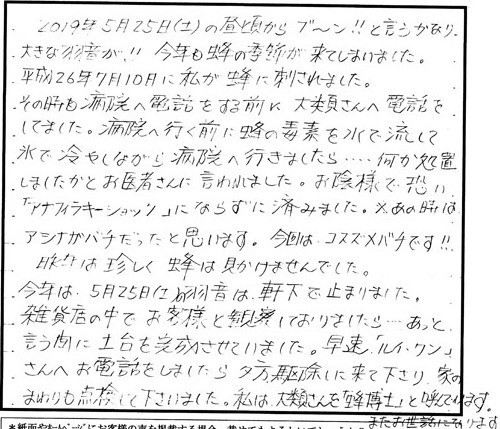 2019年5月25日(土)の昼頃からブ〜ン!!と言うかなり
大きな羽音が!! 今年も蜂の季節が来てしまいました。
平成26年7月10日に私が蜂に刺されました。
その時も病院へ電話をする前に大類さんへ電話を
してました。病院へ行く前に蜂の毒素を水で流して
氷で冷やしながら病院へ行きましたら……何か処置
しましたかとお医者さんに言われました。お陰様で恐い
「アナフィラキーショック」にならずに済みました。※あの時は
アシナガバチだったと思います。今回はコスズメバチです!!
昨年は珍しく蜂は見かけませんでした。
今年は、5月25日(土)羽音は軒下で止まりました。
雑貨店の中でお客様と観察しておりましたら…あっと
言う間に土台を完成させていました。早速「ルイ・ワン」
さんへお電話をしましたら夕方駆除に来て下り、家の
まわりも点検して下さいました。私は、大類さんを「蜂博士」と呼んでいます。
またお世話になります
*紙面やホームページにお客様の声を掲載する場合、載せてもよろしいでしょうか